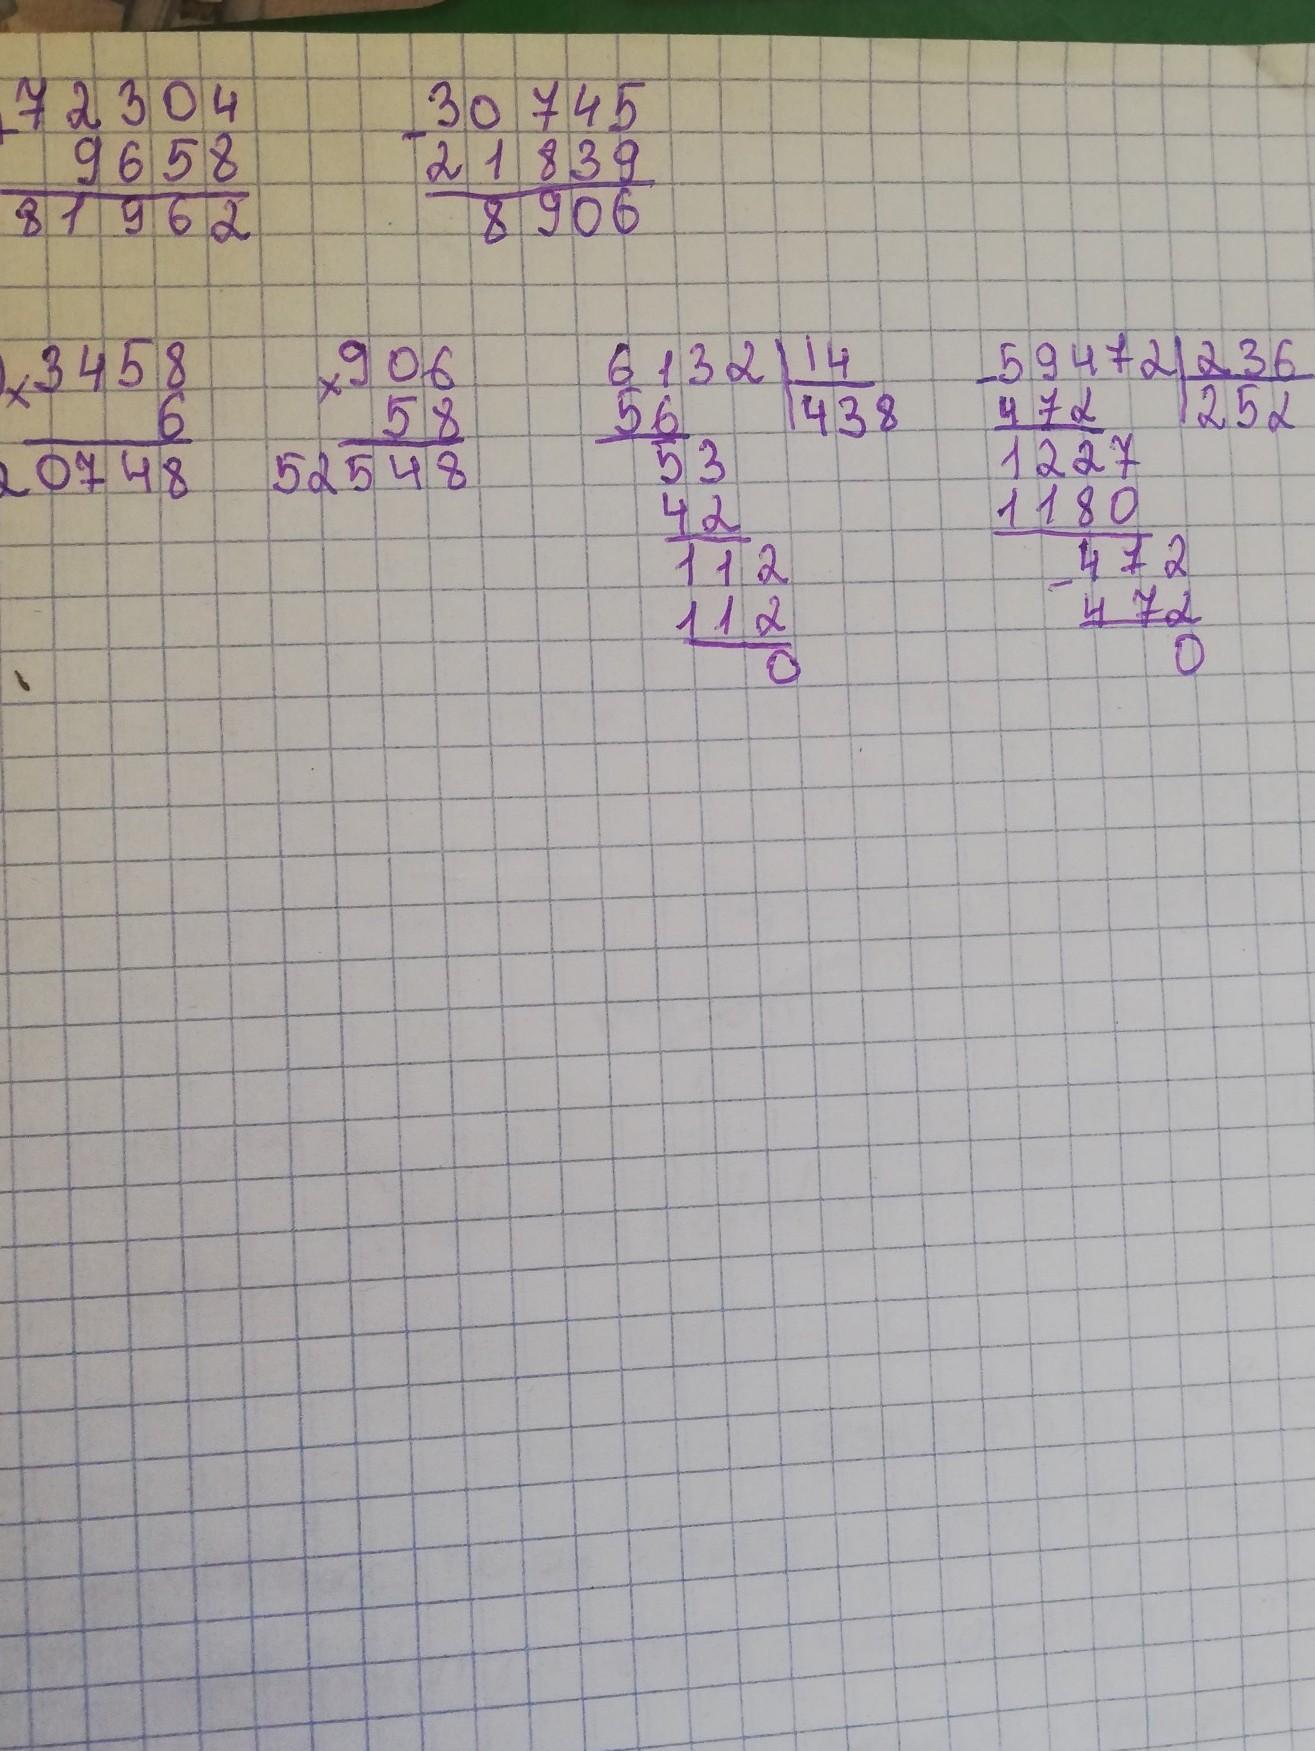 + 72304 - 30745
9658 21839
81962 8906
× 3458 × 906 6132 | 14 - 59472 | 236
6 58 56 | 438 472 | 252
20748 52548 53 1227
42 1180
112 - 472
112 472
0 0